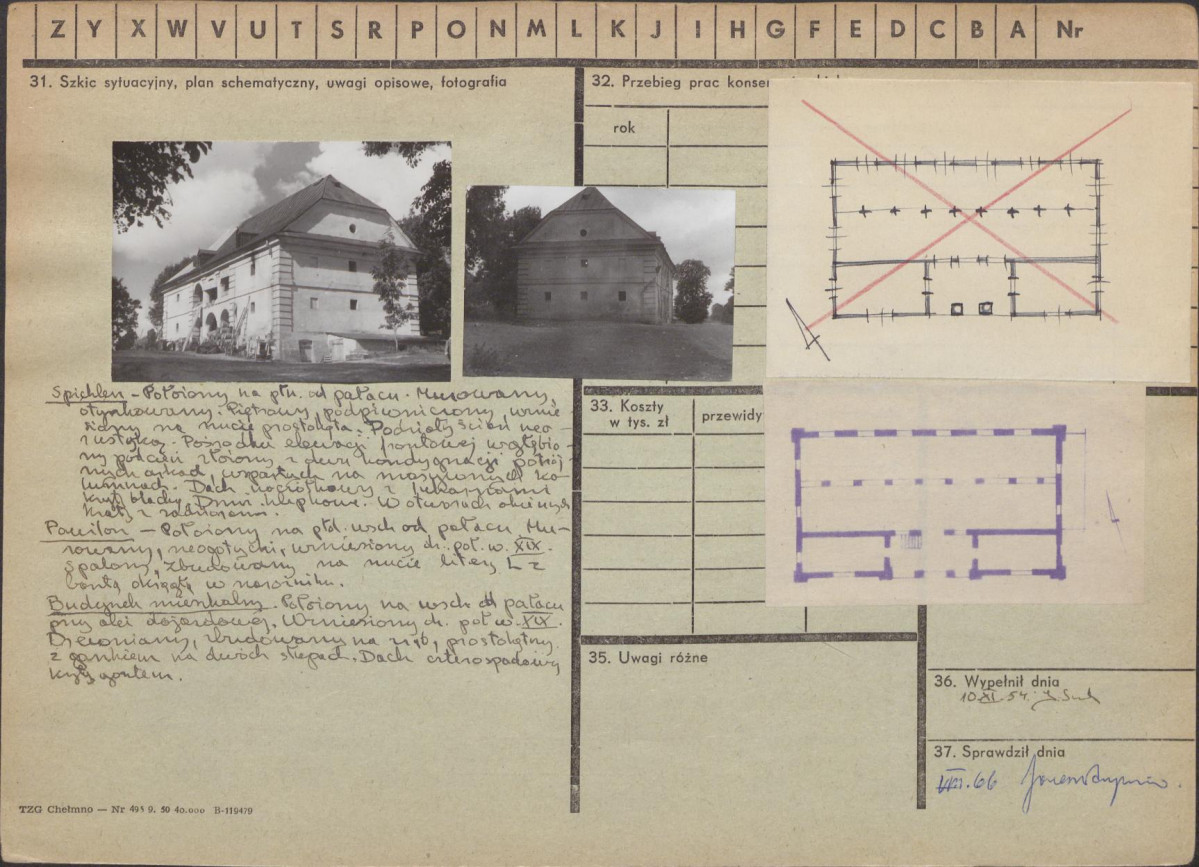 Z Y X W V U T S R P O N M L K J I H G F E D C B A Nr
31. Szkic sytuacyjny, plan schematyczny, uwagi opisowe, fotografia
Spichlerz - Położony na płn. od pałacu. Murowany,
otynkowany. Piętrowy, podpiwniczony, wznie-
siony na rzucie prostokąta. Podziały ścian neo-
rustyką. Pośrodku elewacji frontowej wgłębio-
ny podcień złożony z dwu kondygnacji potrój-
nych arkad, wspartych na masywnych ko-
lumnach. Dach z lukarnami
kryty blachą. Drzwi klepkowe. W otworach okiennych
kraty z zadziorami.
Pawilon - Położony na płd. wsch. od pałacu. Mu-
rowany, neogotycki, wzniesiony dr. poł. w. XIX.
Spalony, zbudowany na rzucie litery L z
basztą okrągłą w narożniku.
Budynek mieszkalny. Położony na wsch. od pałacu
przy alei dojazdowej. Wzniesiony dr. poł. w. XIX.
Drewniany, zbudowany na zrąb, prostokątny
z gankiem na dwóch słupach. Dach czterospadowy
kryty gontem.
TZG Chełmno — Nr 493 9. 50 40.000 B-119479
32. Przebieg prac konser
rok
33. Koszty
w tys. zł
przewidy
35. Uwagi różne
36. Wypełnił dnia
10 XI. 54.
37. Sprawdził dnia
VIII. 66